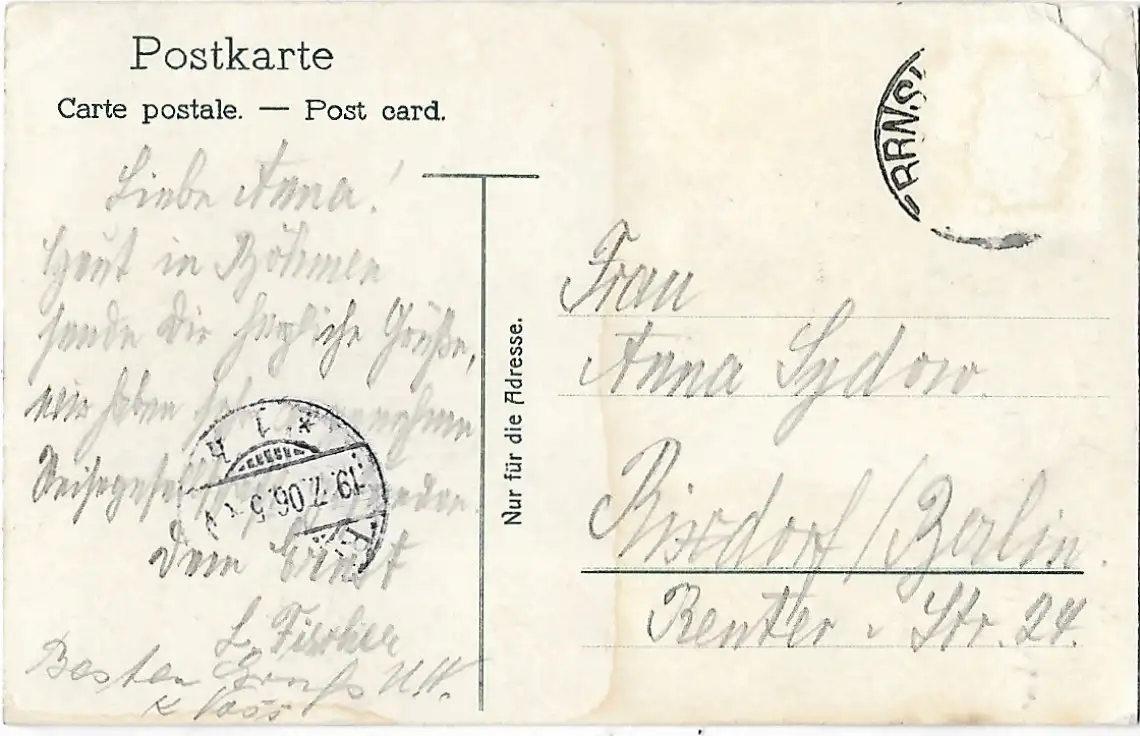 Postkarte
Carte postale. — Post card.
Liebe Anna!
in Böhmen
sende Dir herzliche Grüße,
wir haben
Dein Ernst
L. Fischer
Besten Gruß
Nur für die Adresse.
RRNS
19.7.06.5
Frau
Anna Sydow
Rixdorf/Berlin.
Reuter-Str. 24.